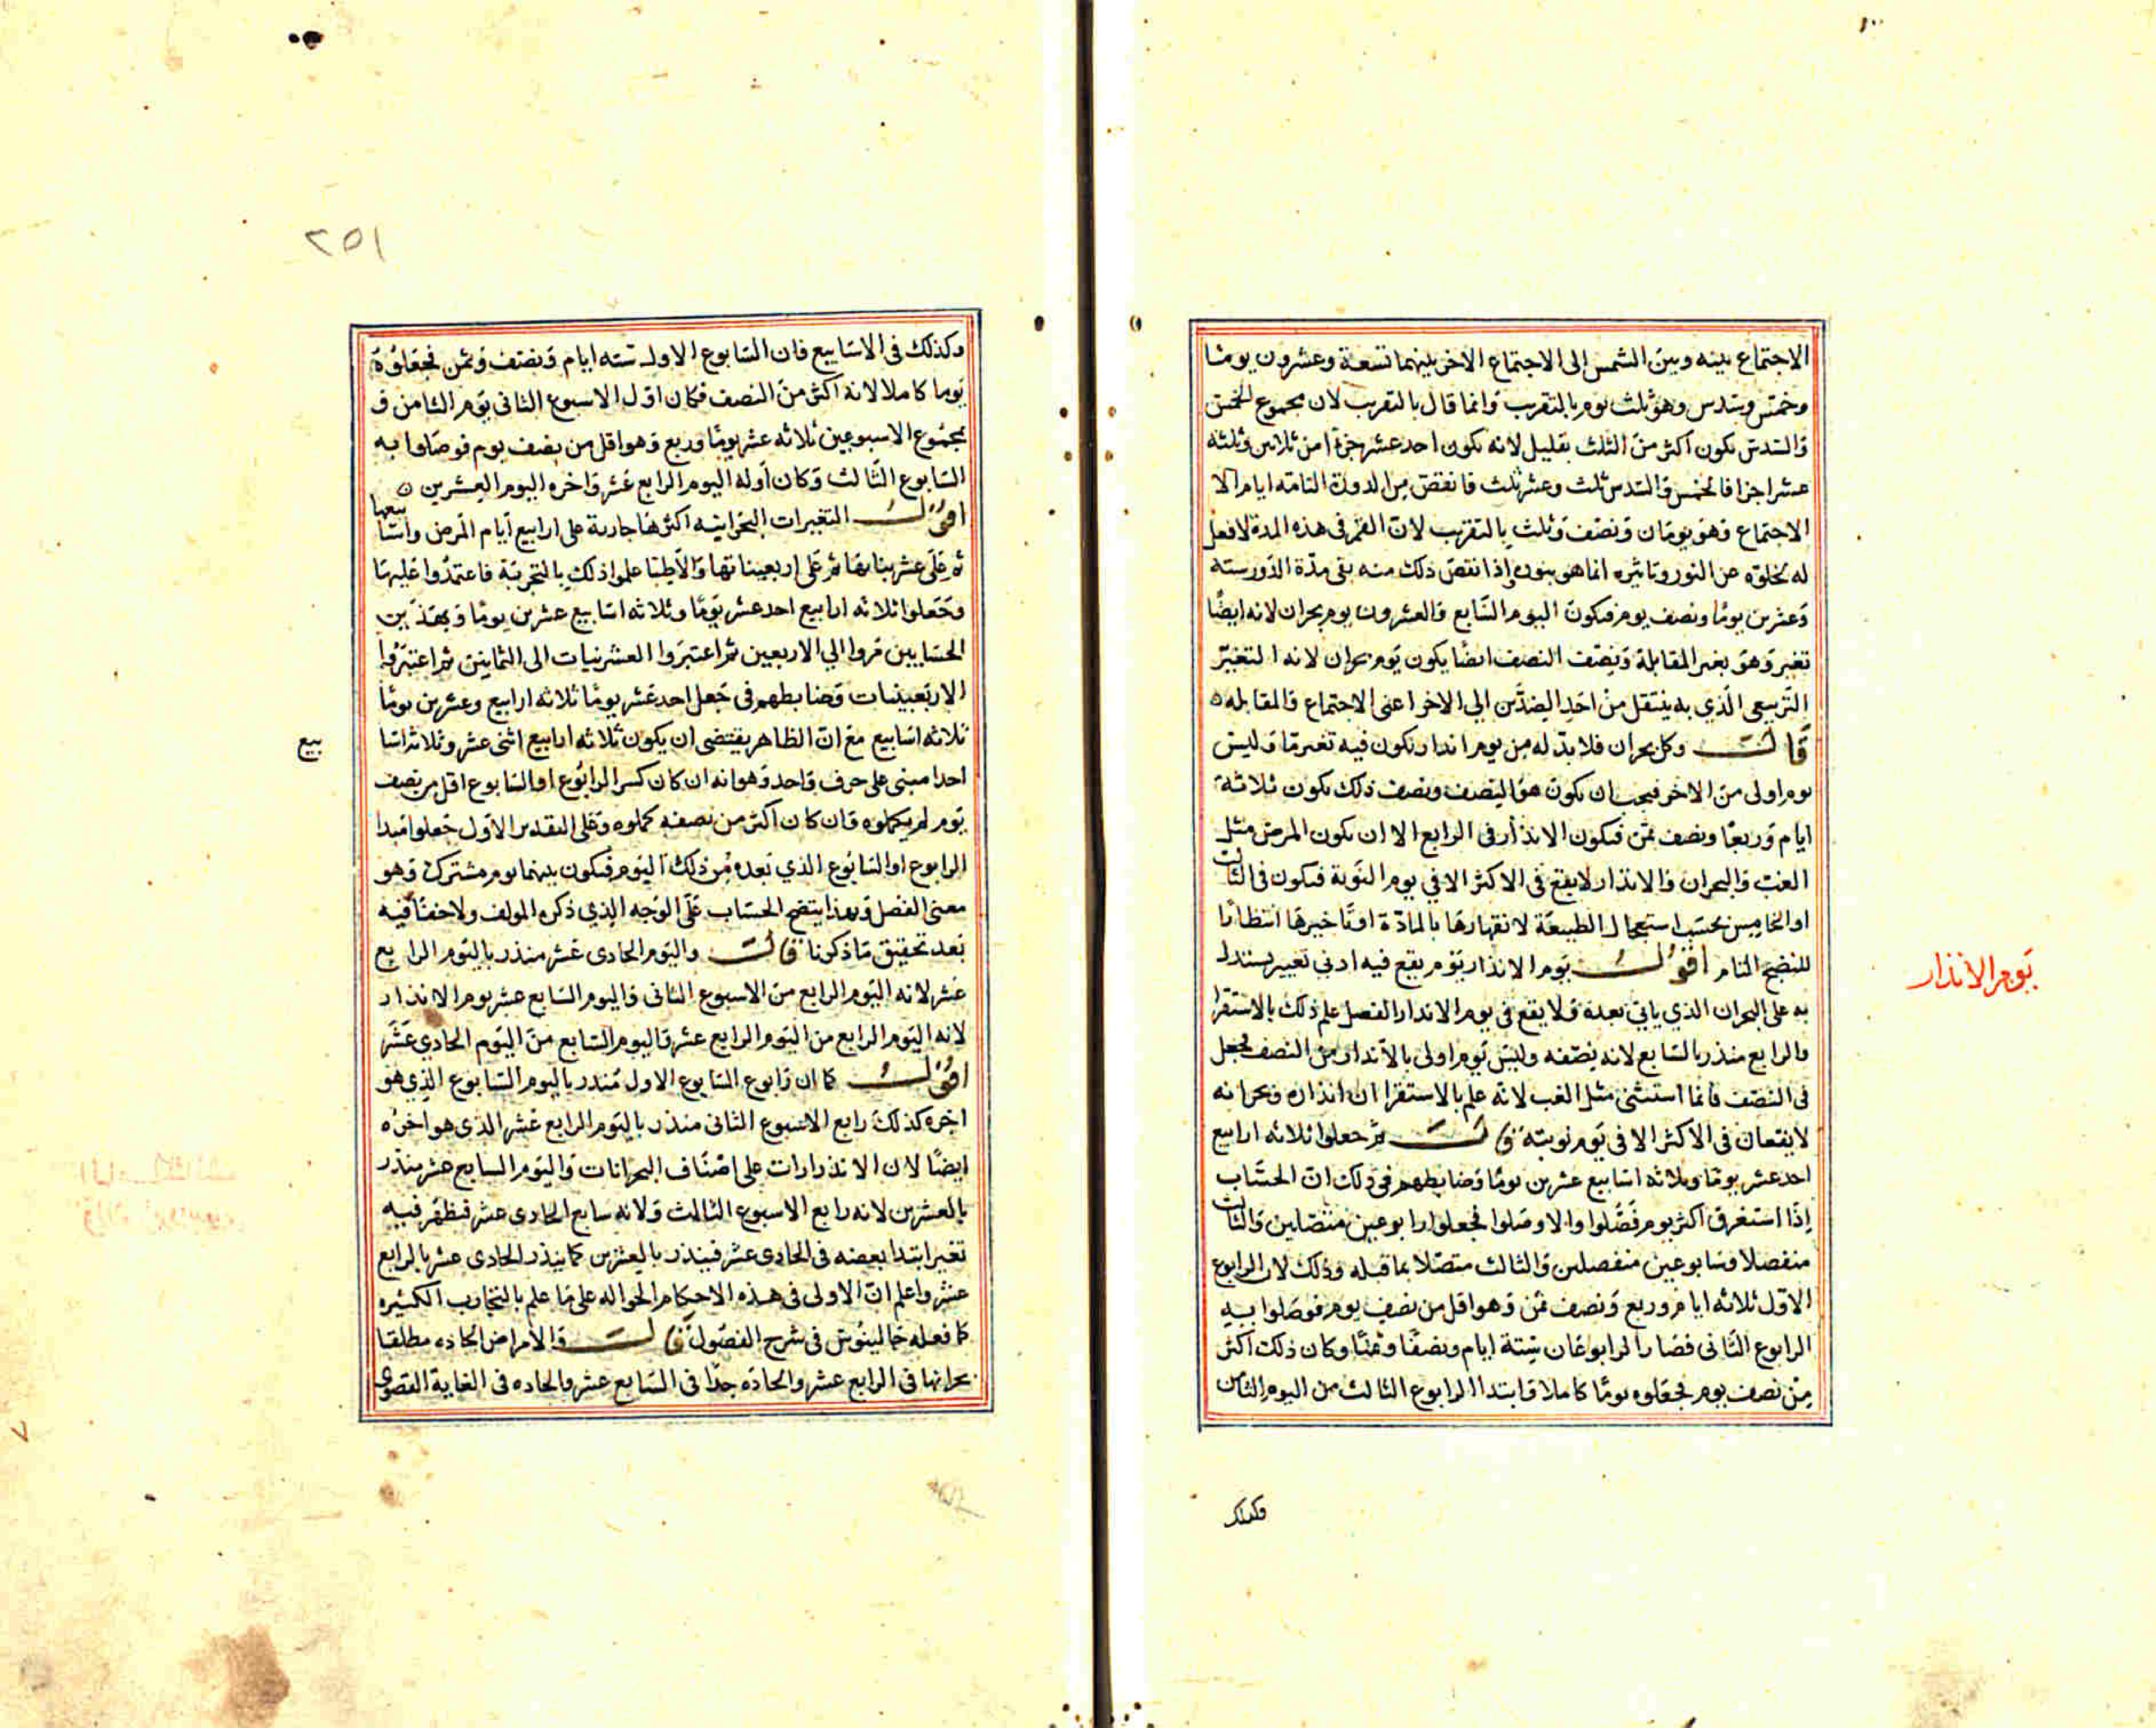 الاجتماع بينه وبين الشمس إلى الاجتماع الاخر بينهما تسعة وعشرون يوما
وخمس وسدس وهو ثلث يوم بالتقريب وانما قال بالتقريب لان مجموع الخمس
والسدس يكون اكثر من الثلث بقليل لانه يكون احد عشر جزءا من ثلاثين وثلثه
عشرا جزا فالخمس والسدس ثلث وعشر ثلث فانقص من الدورة التامة ايام الا
الاجتماع وهو يومان ونصف وثلث بالتقريب لان القمر في هذه المدة لا فعل
له لخلوه عن النور وتاثيره انما هو بنوره واذا نقص ذلك منه بقى مدة الدور ستة
وعشرين يوما ونصف يوم فيكون اليوم السابع والعشرون يوم بحران لانه ايضا
تغير وهو بغير المقابلة ونصف النصف ايضا يكون يوم بحران لانه التغير
التربيعي الذي به ينتقل من احد الضدين الي الاخر اعنى الاجتماع والمقابله ٥
قالت وكل بحران فلا بد له من يوم انذار يكون فيه تغير ما وليس
يوم اولى من الاخر فيجب ان يكون هو النصف ونصف ذلك يكون ثلاثة
ايام وربعا ونصف ثمن فيكون الانذار في الرابع الا ان يكون المرض مثل
الغب والبحران والانذار لا يقع في الاكثر الا في يوم النوبة فيكون في الثالث
او الخامس بحسب استعجال الطبيعة لانقهارها بالمادة او تاخيرها انتظارا
للنضج التام اقول يوم الانذار يوم يقع فيه ادنى تغيير يستدل
يوم الانذار
به على البحران الذي ياتي بعده ولا يقع في يوم الانذار الفصل علم ذلك بالاستقرا
والرابع منذر بالسابع لانه نصفه وليس يوم اولى بالانذار من النصف فجعل
في النصف وانما استثنى مثل الغب لانه علم بالاستقرا ان انذاره وبحرانه
لا يقعان في الاكثر الا في يوم نوبته قالت ثم جعلوا ثلاثه ارابيع
احد عشر يوما وثلاثه اسابيع عشرين يوما وضابطهم في ذلك ان الحساب
إذا استغرق اكثر يوم فصلوا والا وصلوا فجعلوا رابوعين متصلين والثالث
منفصلا وسابوعين منفصلين والثالث متصلا بما قبله وذلك لان الرابوع
الاول ثلاثه ايام وربع ونصف ثمن وهو اقل من نصف يوم فوصلوا به
الرابوع الثانى فصار الرابوعان ستة ايام ونصفا وثمنا وكان ذلك اكثر
من نصف يوم فجعلوه يوما كاملا وابتدا الرابوع الثالث من اليوم الثامن
وكذلك
٢٥١
وكذلك في الاسابيع فان السابوع الاول ستة ايام ونصف وثمن فجعلوه
يوما كاملا لانه اكثر من النصف فكان اول الاسبوع الثانى يوم الثامن و
مجموع الاسبوعين ثلاثه عشر يوما وربع وهو اقل من نصف يوم فوصلوا به
السابوع الثالث وكان اوله اليوم الرابع عشر واخره اليوم العشرين ٥
اقول التغيرات البحرانيه اكثرها جارية على ارابيع ايام المرض واسا بيعها
ثم على عشريناتها ثم على اربعيناتها والاطبا علموا ذلك بالتجربة فاعتمدوا عليها
وجعلوا ثلاثه ارابيع احد عشر يوما وثلاثه اسابيع عشرين يوما وبهذين
الحسابين مروا الي الاربعين ثم اعتبروا العشرينيات الى الثمانين ثم اعتبروا
الاربعينيات وضابطهم في جعل احد عشر يوما ثلاثه ارابيع وعشرين يوما
ثلاثه اسابيع مع ان الظاهر يقتضى ان يكون ثلاثه ارابيع اثنى عشر وثلاث اسا
بيع
احدا مبنى على حرف واحد وهو انه ان كان كسر الرابوع او السابوع اقل من نصف
يوم لم يكملوه وان كان اكثر من نصفه كملوه وعلى التقدير الاول جعلوا مبدا
الرابوع او السابوع الذي بعده من ذلك اليوم فيكون بينهما يوم مشترك وهو
معنى الفصل وبهذا يتضح الحساب على الوجه الذي ذكره المولف ولا خفا فيه
بعد تحقيق ما ذكرنا قالت واليوم الحادى عشر منذر باليوم الرابع
عشر لانه اليوم الرابع من الاسبوع الثانى واليوم السابع عشر يوم الانذار
لانه اليوم الرابع من اليوم الرابع عشر واليوم السابع من اليوم الحادي عشر
اقول كما ان رابوع السابوع الاول منذر باليوم السابوع الذي هو
اخره كذلك رابع الاسبوع الثانى منذر باليوم الرابع عشر الذى هو اخره
ايضا لان الانذرارات على اصناف البحرانات واليوم السابع عشر منذر
بالعشرين لانه رابع الاسبوع الثالث ولانه سابع الحادى عشر فيظهر فيه
تغير ابتدا بعضه في الحادى عشر فينذر بالعشرين كما ينذر الحادى عشر بالرابع
عشر واعلم ان الاولى في هذه الاحكام الحواله على ما علم بالتجارب الكثيره
كما فعله جالينوس في شرح الفصول قالت والامراض الحاده مطلقا
بحرانها في الرابع عشر والحاده جدا في السابع عشر والحاده في الغاية القصوى